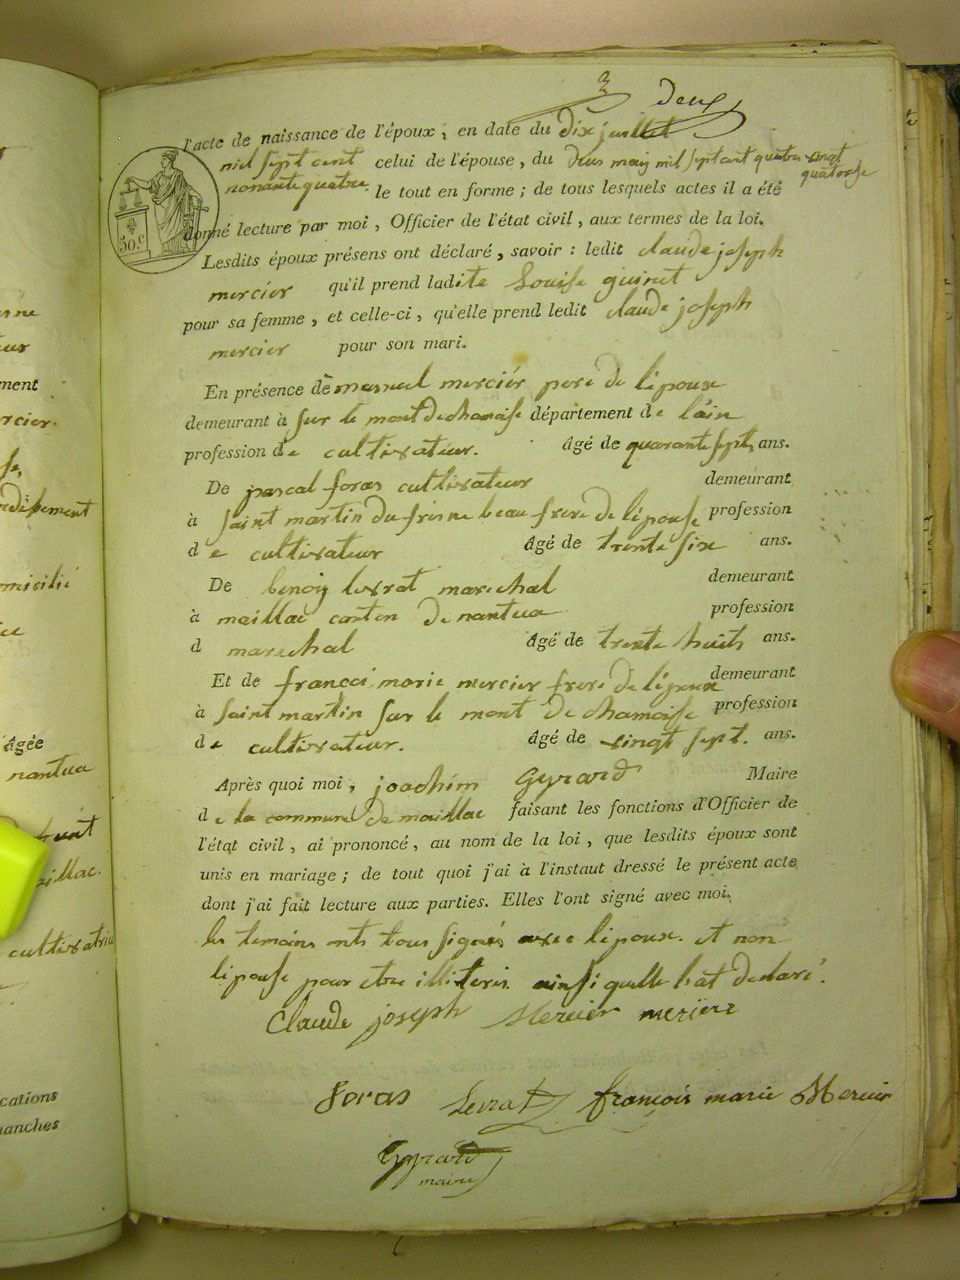 2 deux
l'acte de naissance de l'époux ; en date du dix juillet
mil sept cent celui de l'épouse, du deux may mil sept cent quatre vingt
quatorse
nonante quatre. le tout en forme ; de tous lesquels actes il a été
donné lecture par moi, Officier de l'état civil, aux termes de la loi.
50.c
Lesdits époux présens ont déclaré, savoir : ledit claude joseph
mercier qu'il prend ladite Louise guinet
pour sa femme, et celle-ci, qu'elle prend ledit claude joseph
mercier pour son mari.
En présence de manuel merciér pere de lépoux
demeurant à sur le mont de chamoise département de l'ain
profession de cultivateur. âgé de quarante sept ans.
De pascal foras cultivateur demeurant
à saint martin du fresne beau frere de lépouse profession
de cultivateur âgé de trente six ans.
De benoig levrat marechal demeurant
à maillac canton de nantua profession
d marechal âgé de trente huit ans.
Et de francoi marie mercier frere de lépoux demeurant
à saint martin sur le mont de chamoise profession
de cultivateur. âgé de vingt sept. ans.
Après quoi moi, joachim Gyrard Maire
de la commune de maillac faisant les fonctions d'Officier de
l'état civil, ai prononcé, au nom de la loi, que lesdits époux sont
unis en mariage ; de tout quoi j'ai à l'instaut dressé le présent acte
dont j'ai fait lecture aux parties. Elles l'ont signé avec moi,
les temoins onts tous signés avec lépoux. et non
lépouse pour etre illiteris ainsi quelle lat declaré.
Claude joseph Mercier meriere
foras Levrat françois marie Mercier
Gyrard
maire
ment
mercier.
domicilié
âgée
nantua
maillac.
cultivatrice
cations
manches